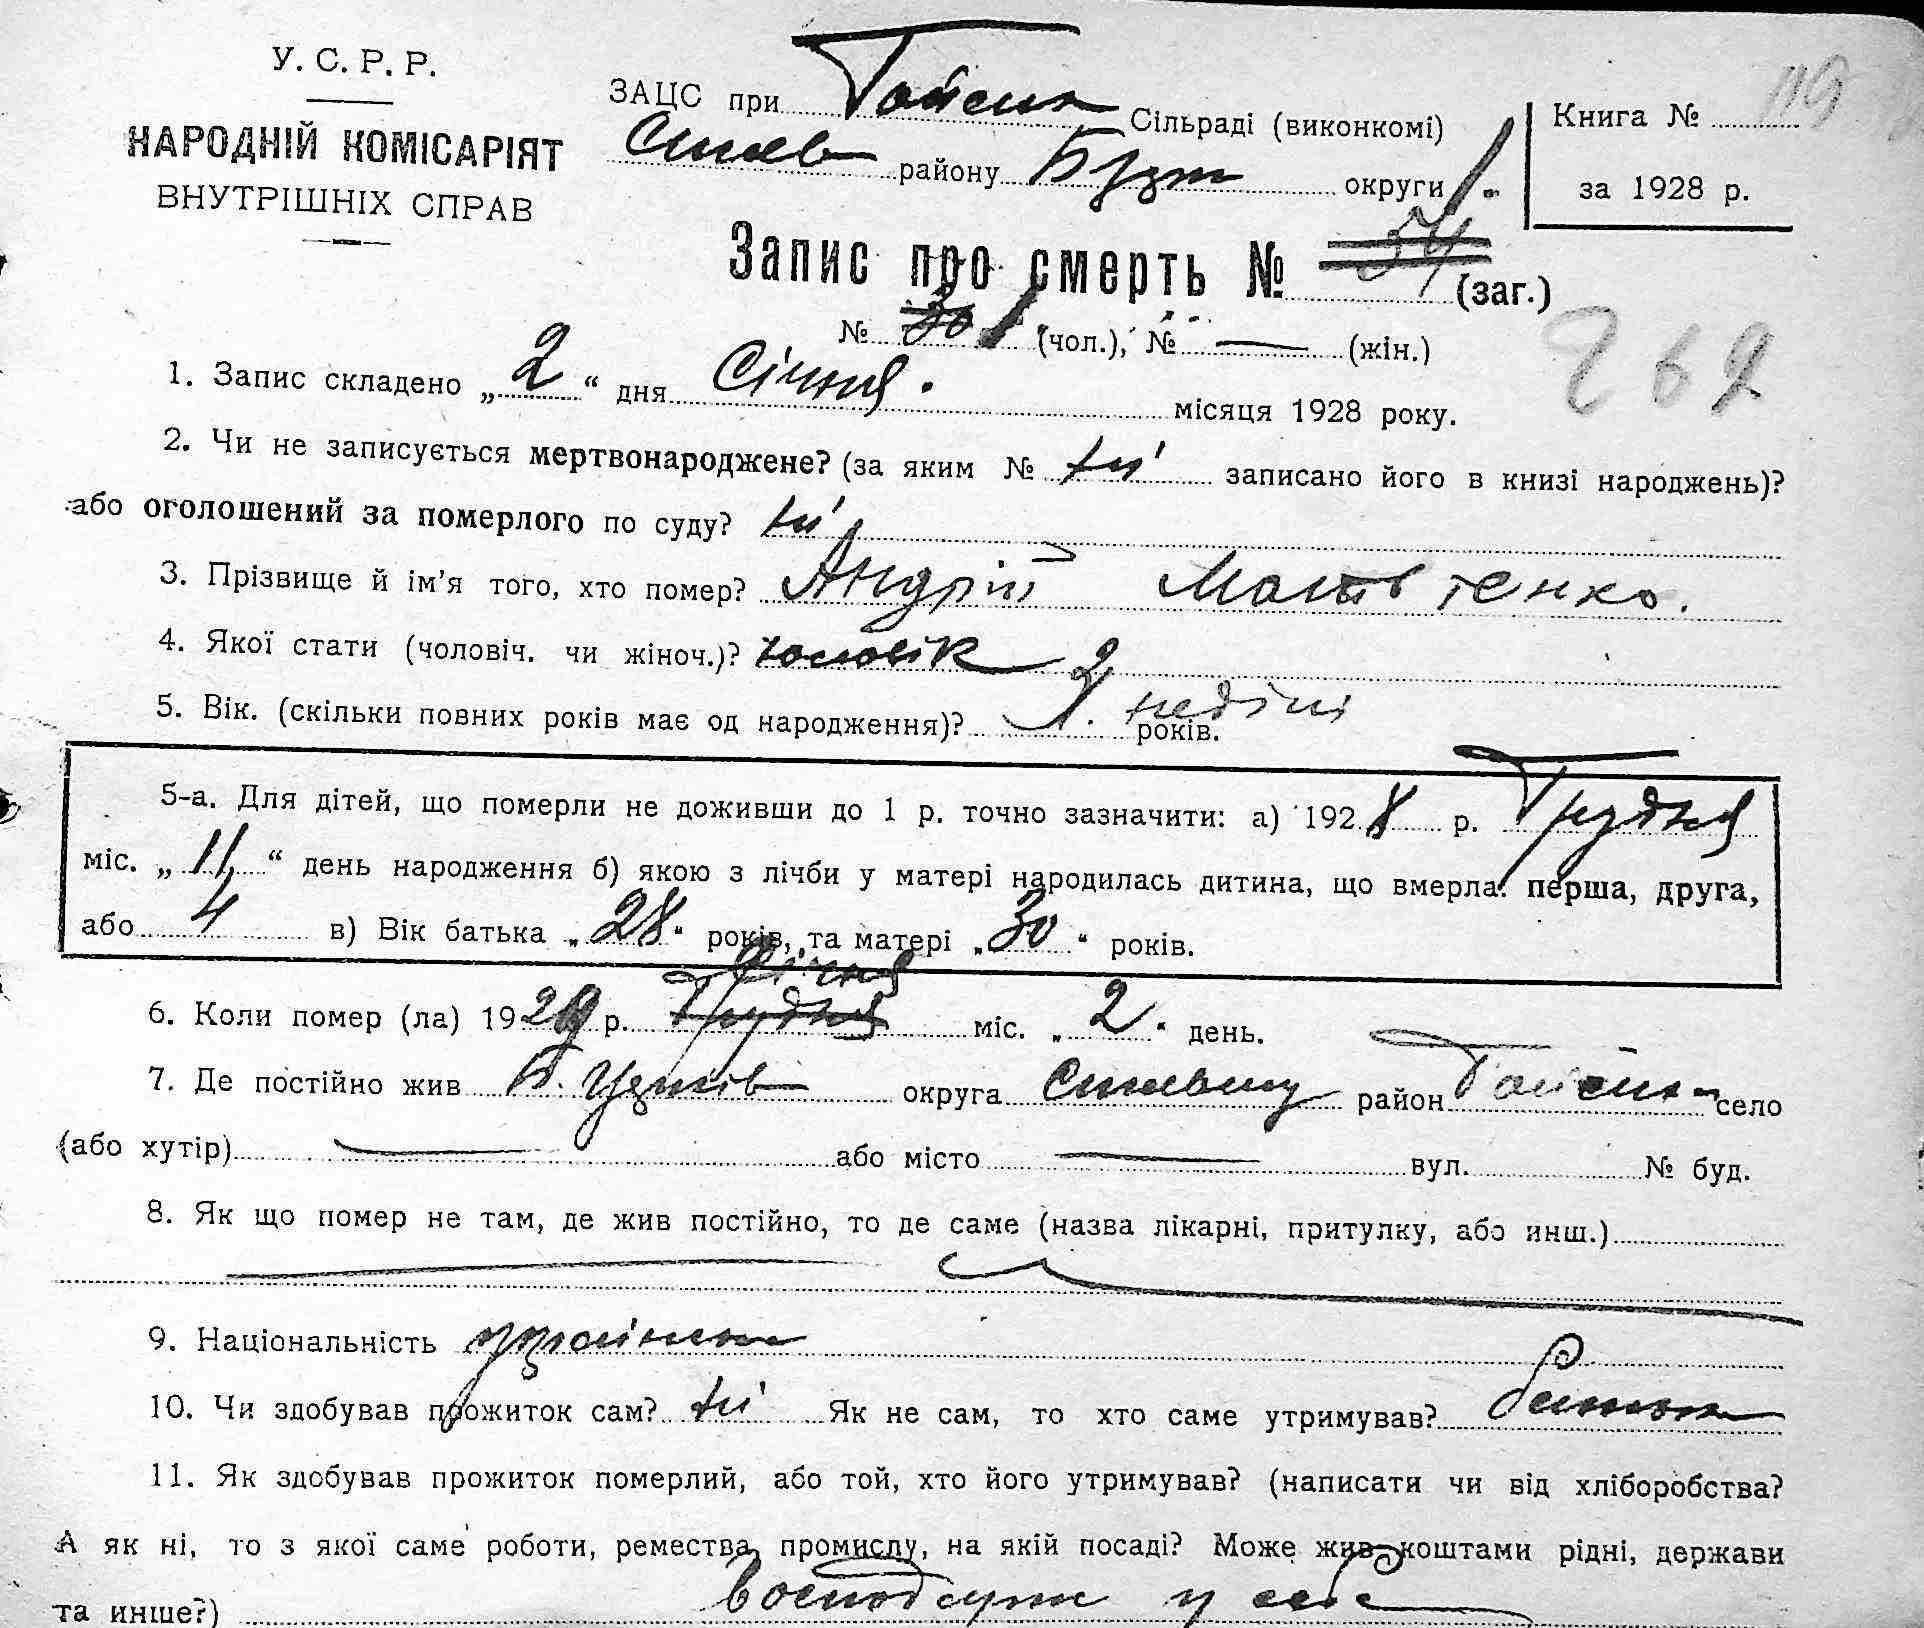 119
У. С. Р. Р.
НАРОДНІЙ КОМІСАРІЯТ
ВНУТРІШНІХ СПРАВ
ЗАЦС при Гайсин Сільраді (виконкомі)
району округи
Книга №
за 1928 р.
Запис про смерть № 54 1 (заг.)
№ 30 1 (чол.), № — (жін.)
262
1. Запис складено „2“ дня Січня. місяця 1928 року.
2. Чи не записується мертвонароджене? (за яким № ні записано його в книзі народжень)?
або оголошений за померлого по суду? ні
3. Прізвище й ім’я того, хто помер? Андрій Матвієнко.
4. Якої стати (чоловіч. чи жіноч.)? чоловік
5. Вік. (скільки повних років має од народження)? 2. неділі років.
5-а. Для дітей, що померли не доживши до 1 р. точно зазначити: а) 1928 р. Грудня
міс. „11“ день народження б) якою з лічби у матері народилась дитина, що вмерла: перша, друга,
або 4 в) Вік батька „28“ років, та матері „30“ років.
Січня
6. Коли помер (ла) 1929 р. Грудня міс. „2“ день.
7. Де постійно жив округа район село
(або хутір) — або місто — вул. № буд.
8. Як що помер не там, де жив постійно, то де саме (назва лікарні, притулку, або инш.)
9. Національність
10. Чи здобував прожиток сам? ні Як не сам, то хто саме утримував? батько
11. Як здобував прожиток померлий, або той, хто його утримував? (написати чи від хліборобства?
А як ні, то з якої саме роботи, ремества, промислу, на якій посаді? Може жив коштами рідні, держави
та инше?) у себе